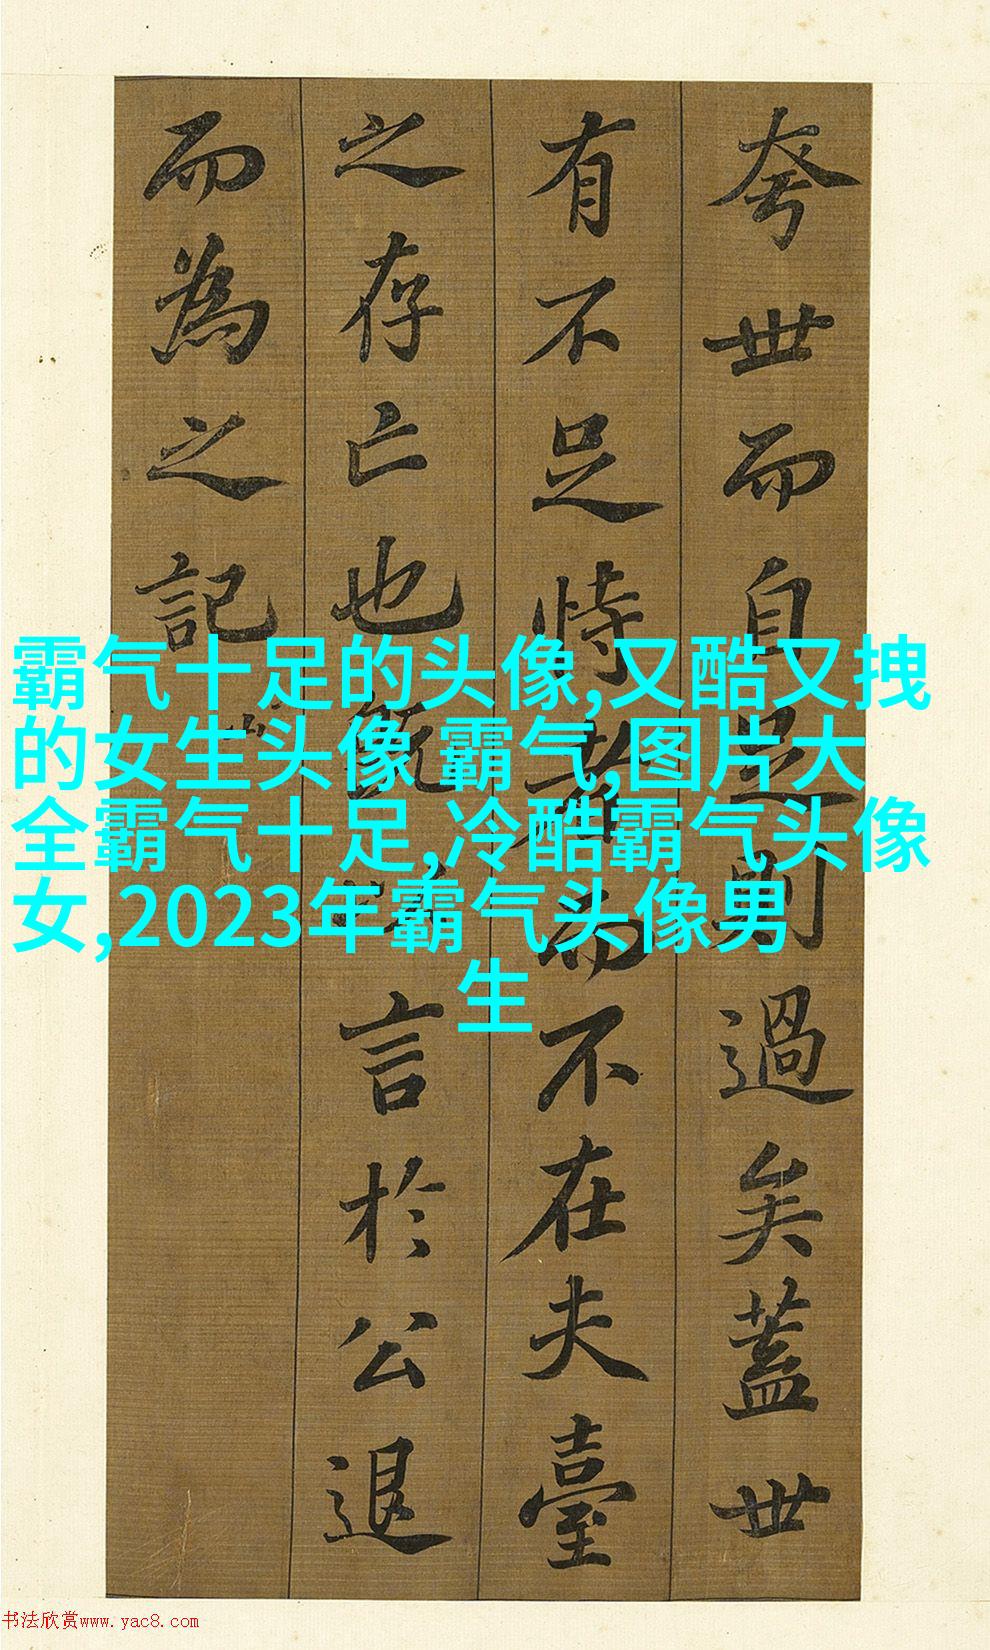 夸世而自足則過矣蓋世
有不足恃者而不在夫臺
之存亡也既以言於公退
而為之記
霸气十足的头像,又酷又拽
的女生头像 霸气,图片大
全霸气十足,冷酷霸气头像
女,2023年霸气头像男
生
书法欣赏www.yac8.com